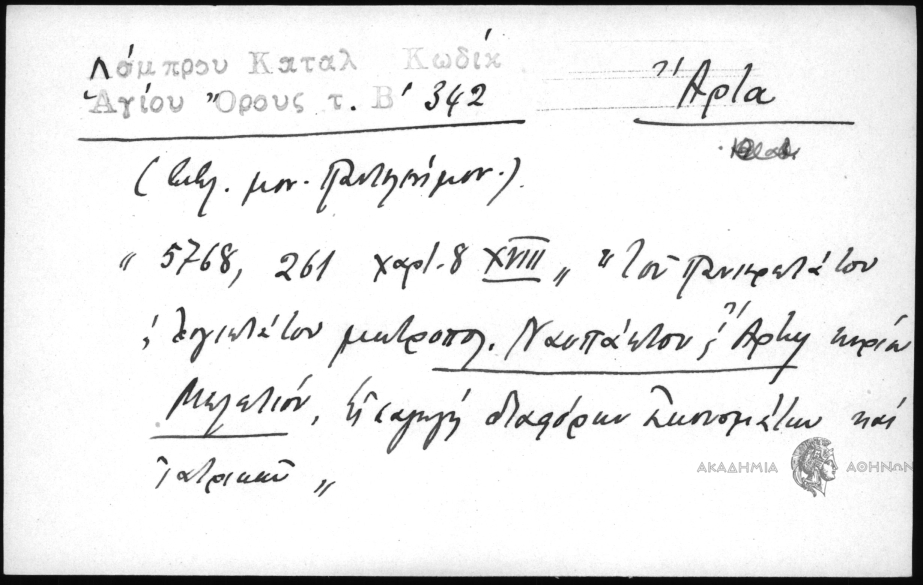 Λάμπρου Καταλ Κωδίκ
Ἁγίου Ὄρους τ. Β' 342
Ἄρτα
(Βιβλ. μον. Παντελεήμον.)
" 5768, 261 χαρτ. 8 XVIII " "Τοῦ Πανιερωτάτου
& λογιωτάτου μητροπολ. Ναυπάκτου & Ἄρτης κυρίου
Μελετίου, Εἰσαγωγή διαφόρων καί
ἰατρικῶν "
ΑΚΑΔΗΜΙΑ ΑΘΗΝΩΝ